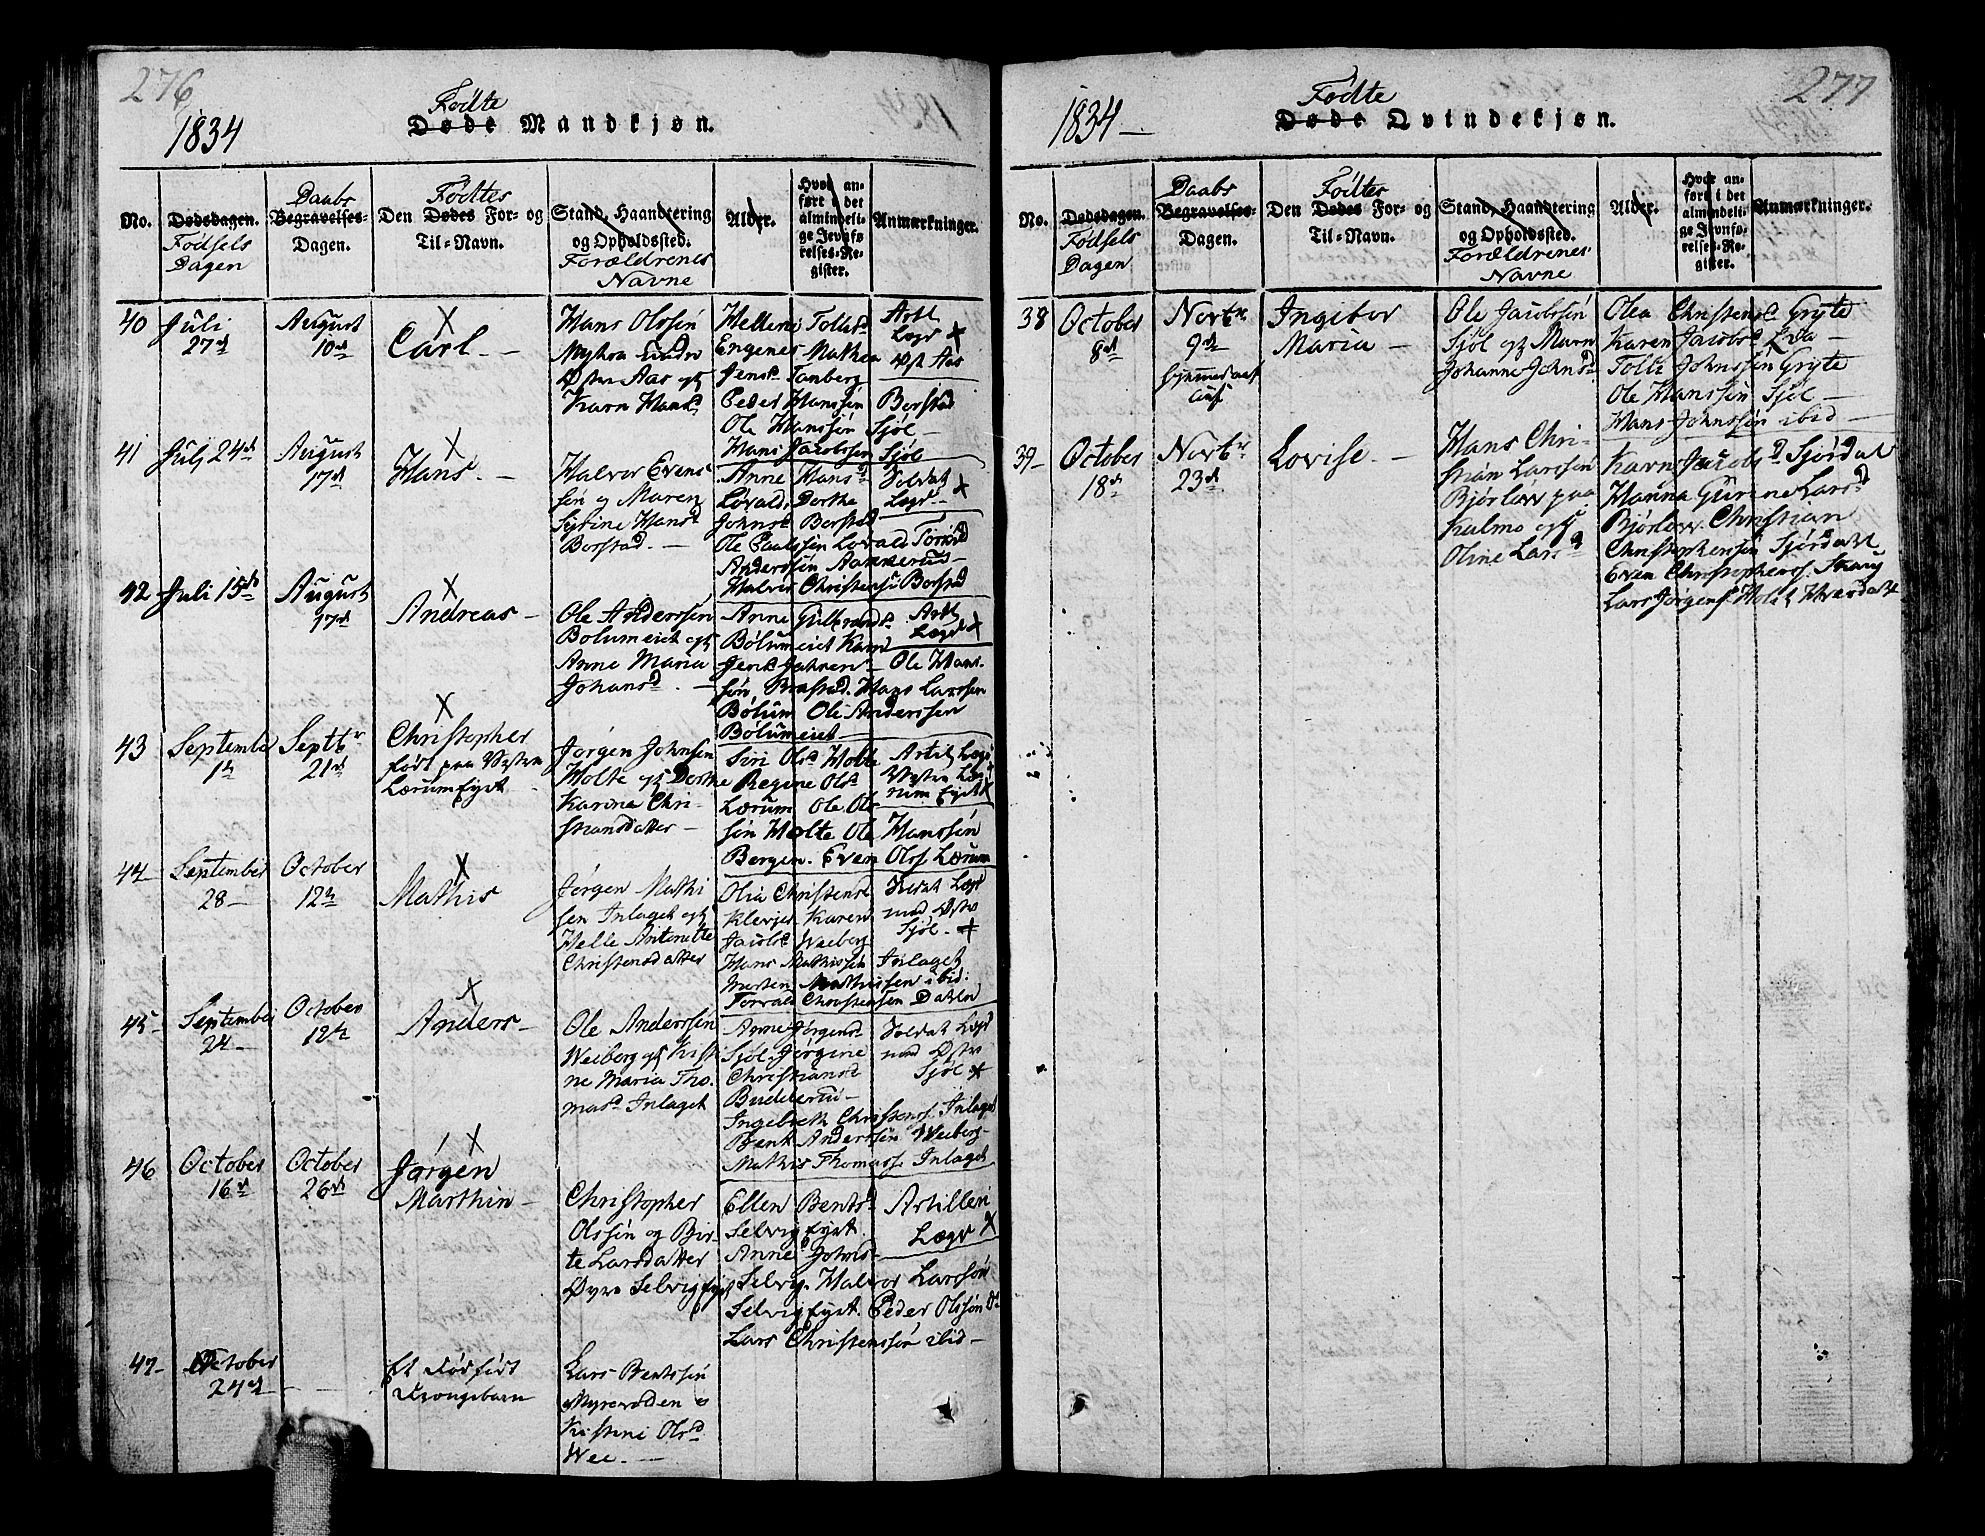 276
1834
Födte
Døde Mandkjøn.
No.
Dødsdagen.
Födsels
Dagen
Daabs
Begravelses-
Dagen.
Födtes
Den Dødes For- og
Til-Navn.
Stand, Haandtering
og Opholdssted.
Forældrenes
Navne
Alder.
Hvor an-
ført i det
almindeli-
ge Jevnfø-
relses-Re-
gister.
Anmærkninger.
40
Juli
27de
August
10de
Carl
Hans Olssön
Østre Aas og
Karn Hansd
Hellene
Engenes Mathea
Jensd Tanberg
Peder Hanssen Borstad
Ole Hanssön Sjöl
Hans Jacobssen Sjöl
41
Julj 24de
August
17de
Hans
Halvor Evens
sön og Maren
Hansd
Borstad
Anne Hansd
Lovald, Dorthe
Johnsd Borstad
Ole Paulssön Lovald
Anderssön
Halvor Christensen Borstad
Soldat
Lægd
42
Juli 15de
August
17de
Andreas
Ole Anderssön
Bölumeiet og
Anne Maria
Johansd
Anne Gulbrandsd
Bölumeiet Karn
Jensd Jahren Ole Hans-
sön Hans Larssen
Bölum Ole Anderssen
Bölumeiet
43
September
1te
Septbr
21de
Christopher
född paa Vestre
Lærumeyet
Jörgen Johnsen
Holte og Dorthe
Karine Chri-
stiansdatter
Siri Olsd Holte
Regine Olsd
Lærum Ole Ols-
sön Holte Ole Hanssön
Bergen. Even Olss Lærum
Artil Lægd
Vestre Læ-
rum Eyet
44
September
28
October
12te
Mathis
Jörgen Mathi
sen Inlaget og
Helle Antonette
Christensdatter
Olia Christensd
Klevjer Karen
Jacobsd Weeberg
Hans Mathissen Inlaget
Morten Mathissen ibid:
Torvald Christensen Dahlen
Soldat Lægd
med Østre
Sjöl
45
September
24
October
12te
Anders
Ole Anderssön
Weiberg og Kisti
ne Maria Tho-
masd Inlaget
Anne Jörgensd
Sjöl. Jörgine
Christiansd
Budderud
Ingebreth Christenss. Inlaget
Bent Anderssön Weeberg
Mathis Thomass. Inlaget
Soldat Lægd
med Østre
Sjöl
46
October
16de
October
26de
Jörgen
Marthin
Christopher
Olssön og Bir-
te Larsdatter
Øvre Selvig Eyet
Ellen Bentsd
Selvig eyet.
Anne Johnsd
Selvig. Halvor Larssön
Selvigeyet. Peder Olssön
Lars Christenssön ibid
Artilleri
Lægd
47
October
24de
Et Dödfödt
Drengebarn
Lars Bentssön
Myrerödden
Kistine Olsd
Wee.
277
1834
Födte
Døde Qvindekjøn.
No.
Dødsdagen.
Födsels
Dagen
Daabs
Begravelses-
Dagen.
Födtes
Den Dødes For- og
Til-Navn.
Stand, Haandtering
og Opholdssted.
Forældrenes
Navne
Alder.
Hvor an-
ført i det
almindeli-
ge Jevnfø-
relses-Re-
gister.
Anmærkninger.
38
October
8de
Novbr
9de
Ingebor
Maria
Ole Jacobssön
Sjöl og Marn
Johanne Johnsd
Olea Christensd Gryte
Karen Jacobsd
Tolle Johnssön Gryte
Ole Hanssön Sjöl
Hans Johnssön ibid
39
October
18de
Novbr
23de
Lovise
Hans Chri-
stian Larssön
Björlöw paa
Kulmo og
Oline Larsd
Karn Jacobsd Sjördal
Hanna Gurine Larsd
Björlow. Christian
Christophersön Sjördahl
Even Christopherss. Skaug
Lars Jörgens Holst